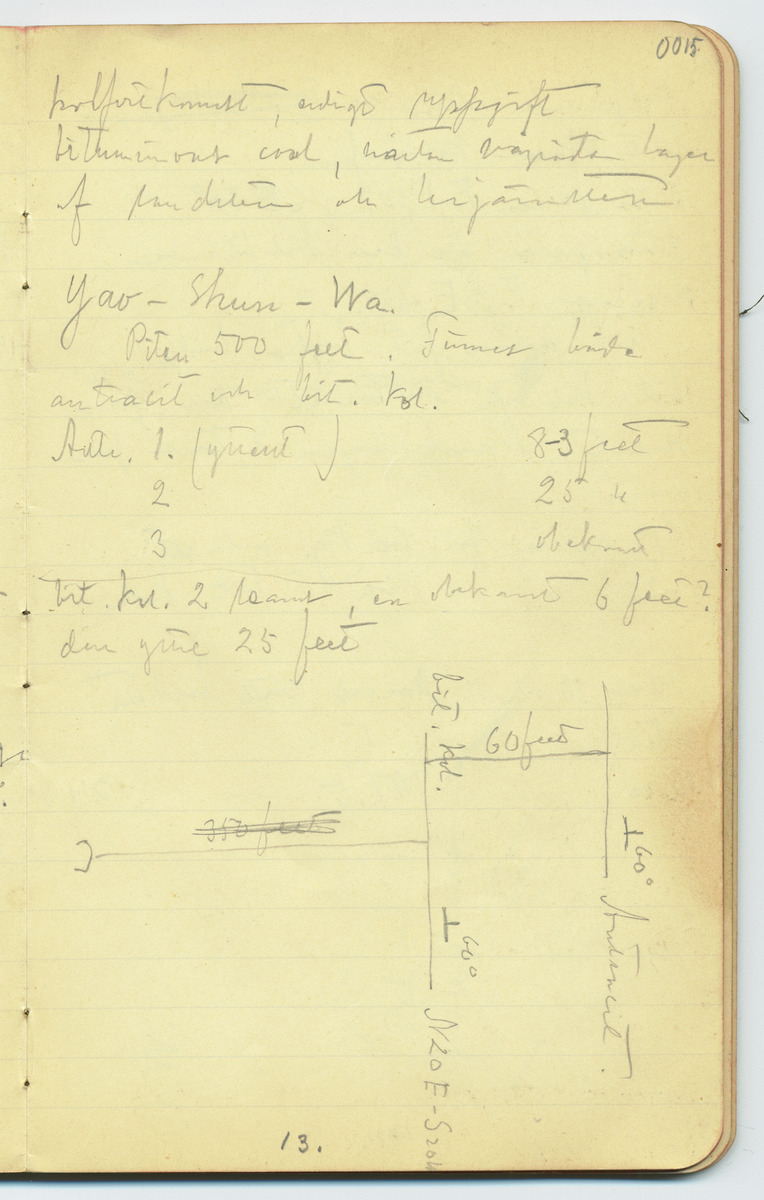 0015
kolförekomst, enligt uppgift
bituminous coal, nästan vågräta lager
af sandsten och lerjärnsten
Yao-Shun-Wa.
Piten 500 feet. Finnes både
antracit och bit. kol.
Antr. 1. (ytterst) 8-3 feet
2 25 "
3 obekant
bit. kol. 2 seams, en obekant 6 feet?
den yttre 25 feet
bit. kol.
60 feet
350 feet
60°
Antracit.
60°
N20E-S20W
13.